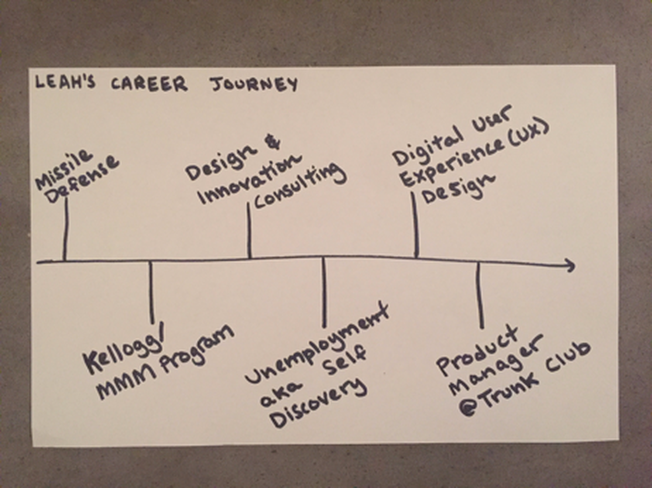 LEAH'S CAREER JOURNEY
Missile
Defense
Kellogg/
MMM Program
Design &
Innovation
Consulting
Unemployment
aka Self
Discovery
Digital User
Experience (UX)
Design
Product
Manager
@Trunk Club